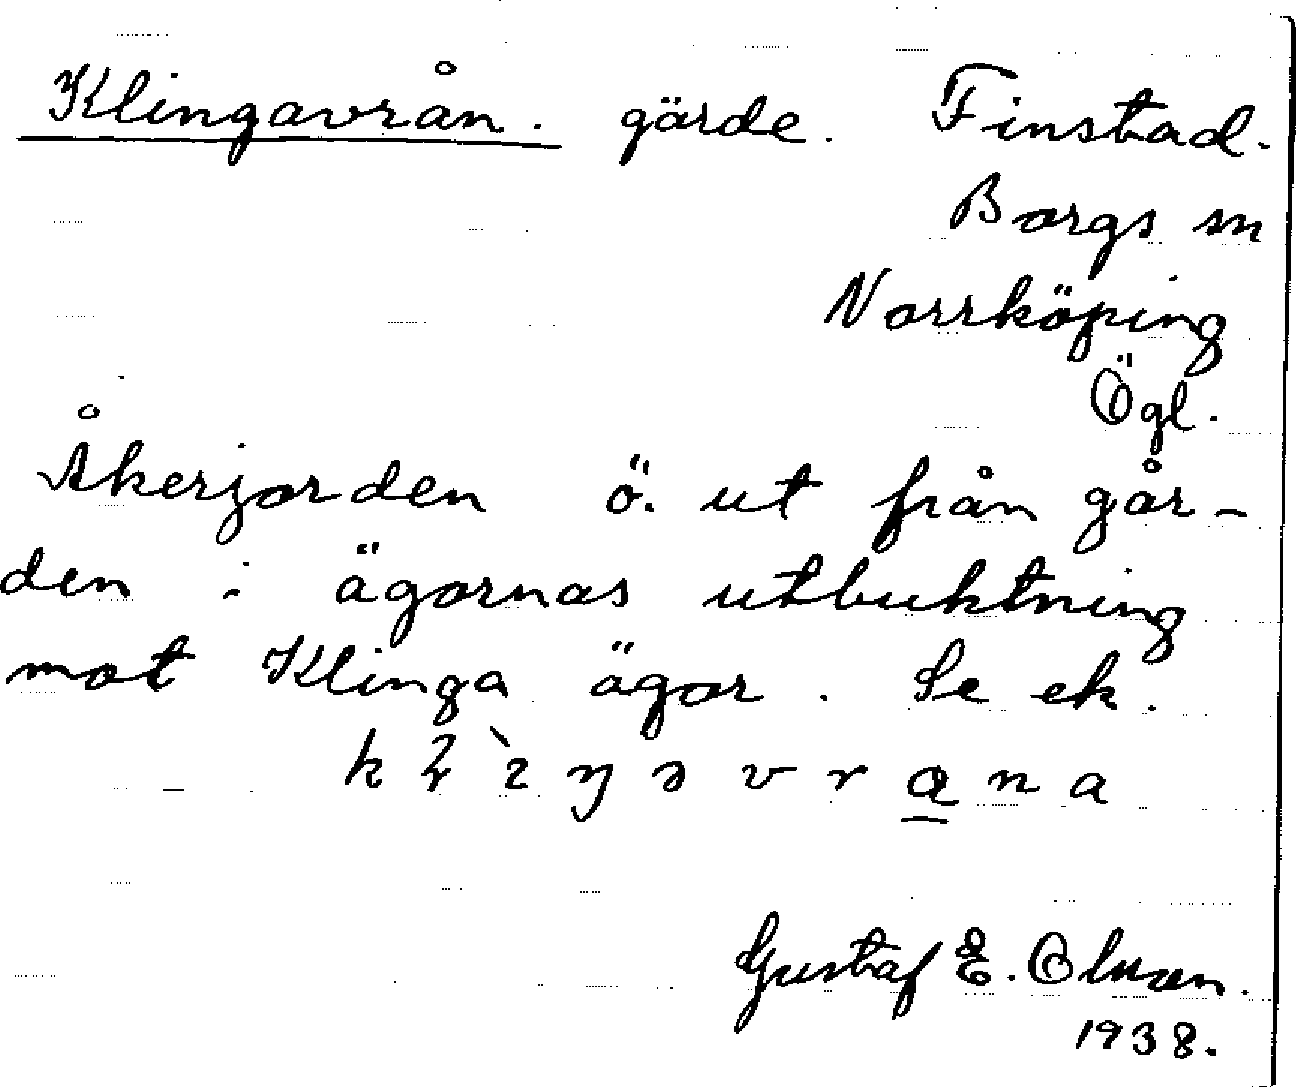 Klingavrån. gärde. Finstad.
Borgs sn
Norrköping
Ögl.
Åkerjorden ö. ut från går-
den i ägornas utbuktning
mot Klinga ägor. Se ek.
Gustaf E. Olsson.
1938.